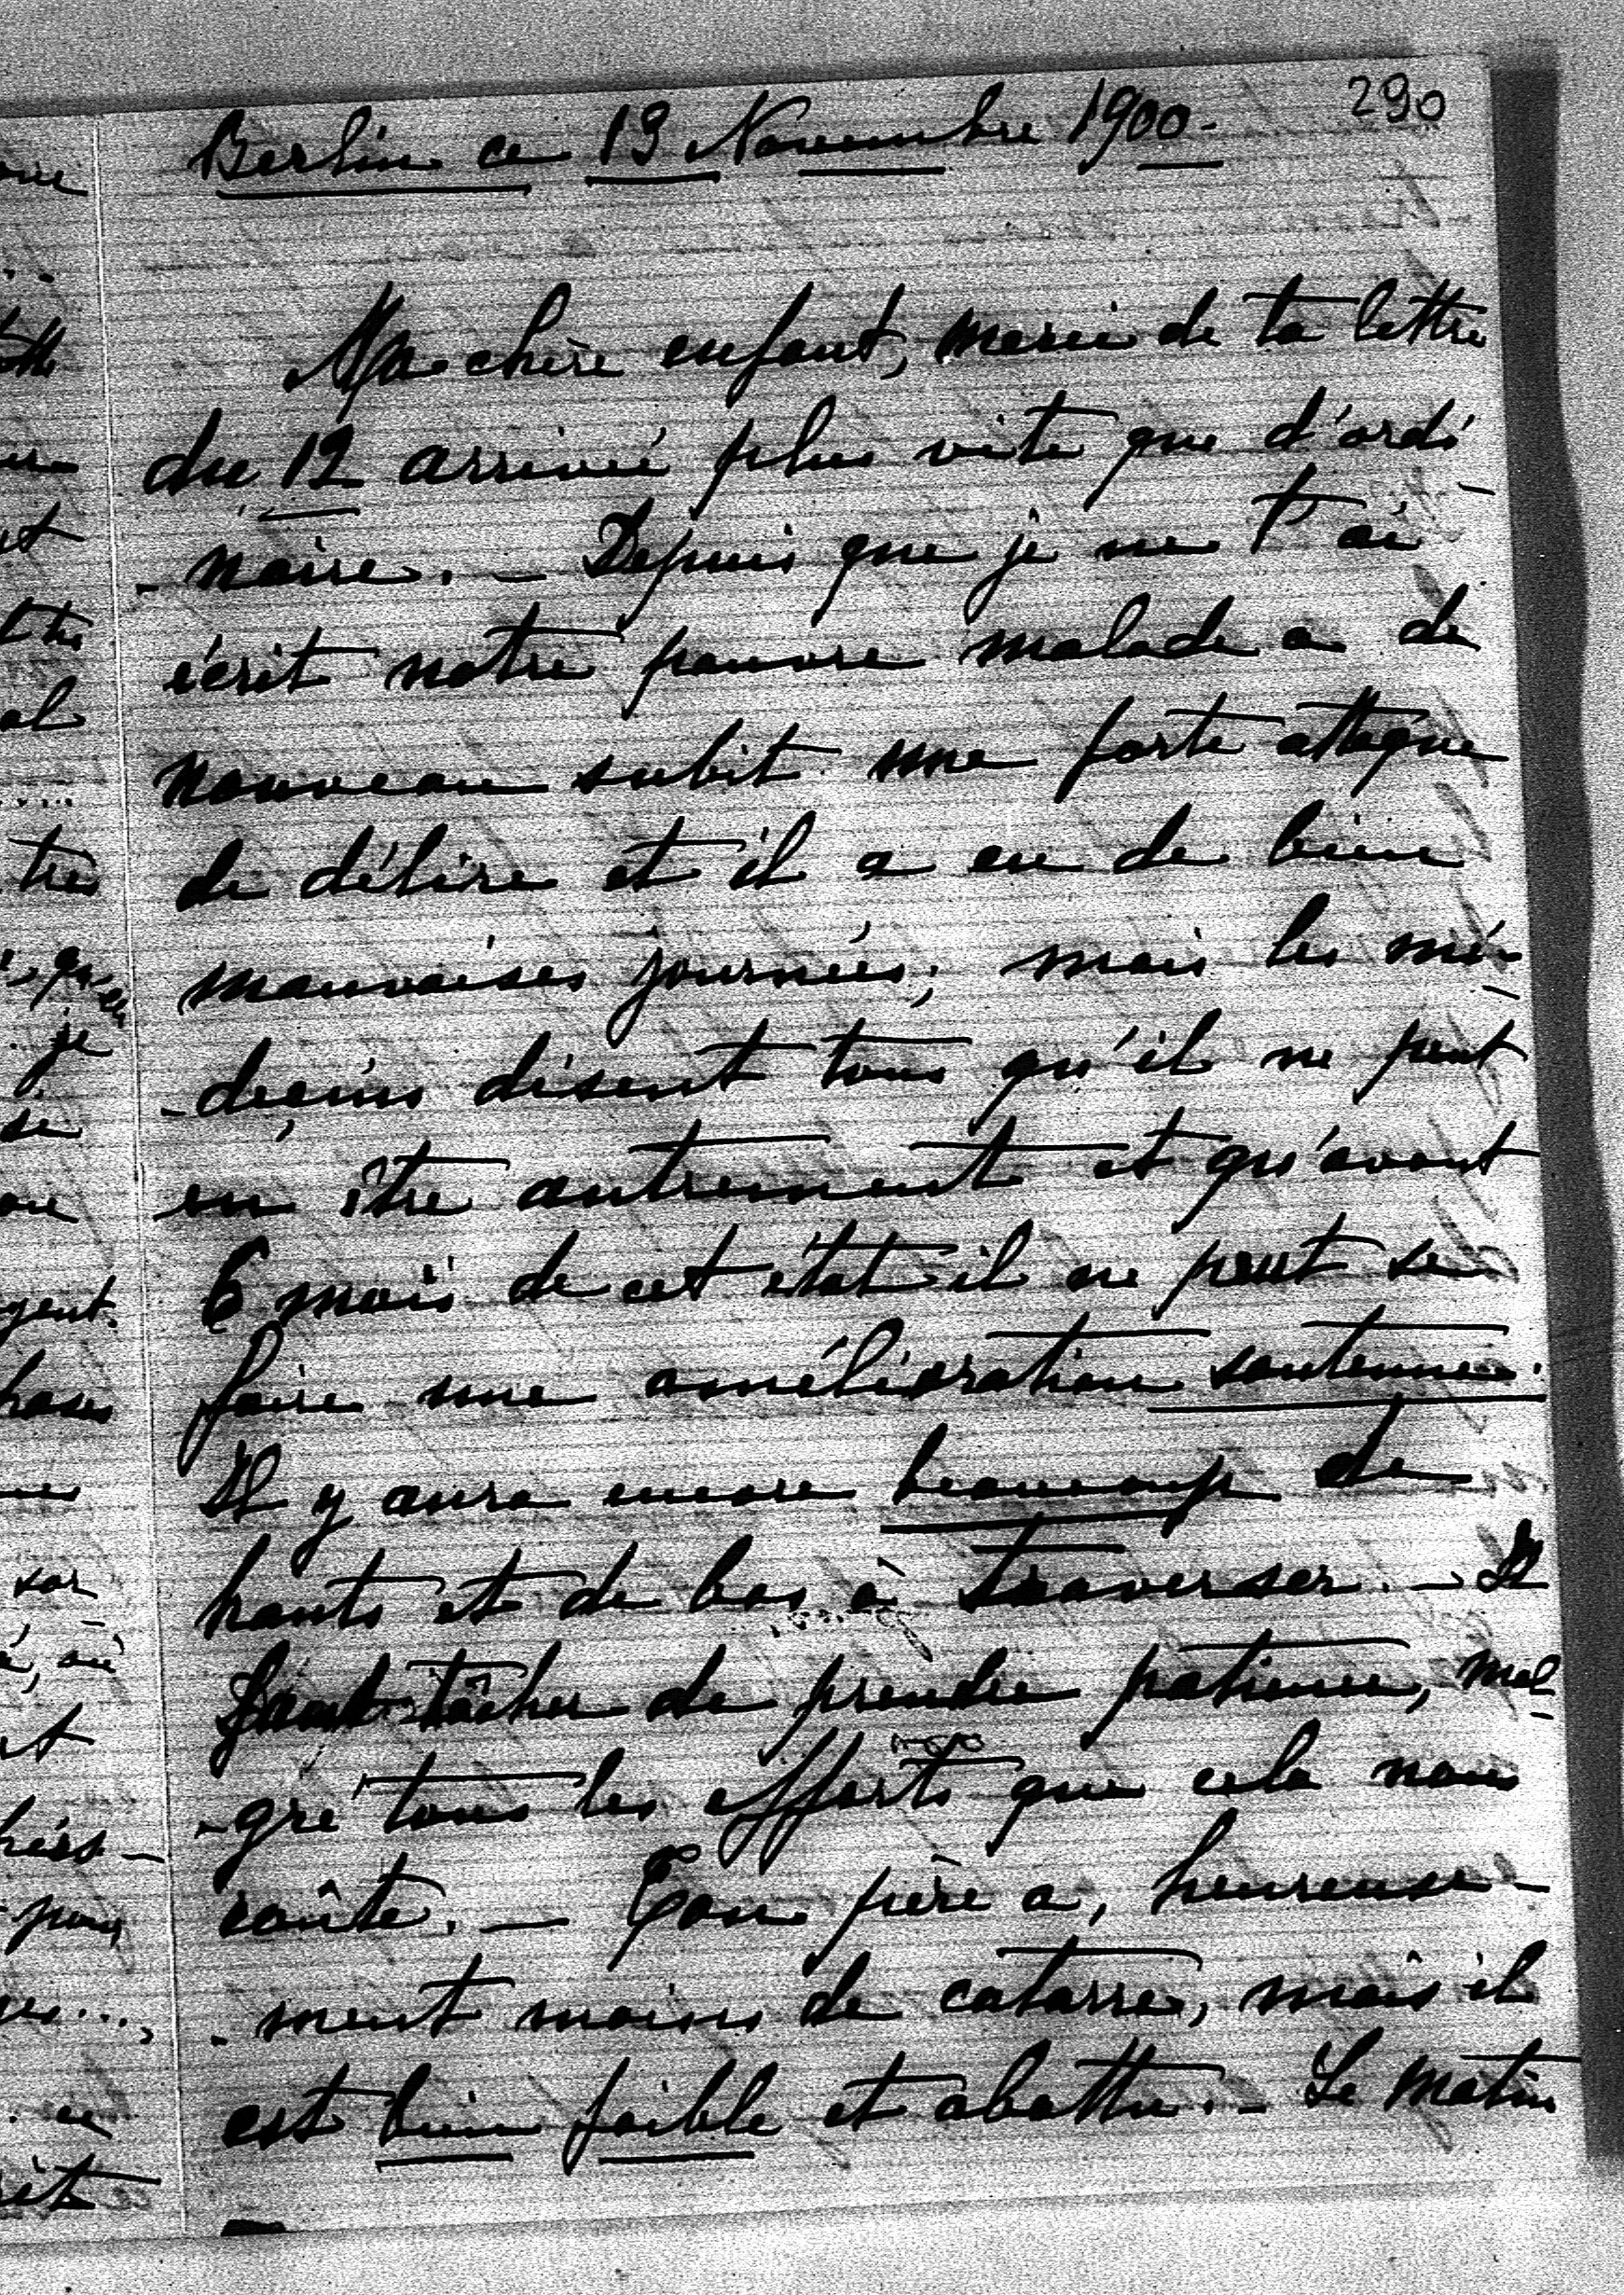 290
Berlin ce 19 Novembre 1900.-
Ma chère enfant, merci de ta lettre
du 12 arrivée plus vite que d'ordi-
-naire. - Depuis que je ne t'ai
écrit notre pauvre malade a de
nouveau subit une forte attaque
de délire et il a eu de bien
mauvaises journées; mais les mé-
-deçins disent tous qu'il ne peut
en être autrement et qu'avant
6 mois de cet état il ne peut se
faire une amélioration soutenue.
Il y aura encore beaucoup de
hauts et de bas à traverser. - Il
faut tâcher de prendre patience, mal-
-gré tous les efforts que cela nous
coûte. - Ton père a, heureuse-
-ment moins de catarre, mais il
est bien faible et abattu. - Le matin